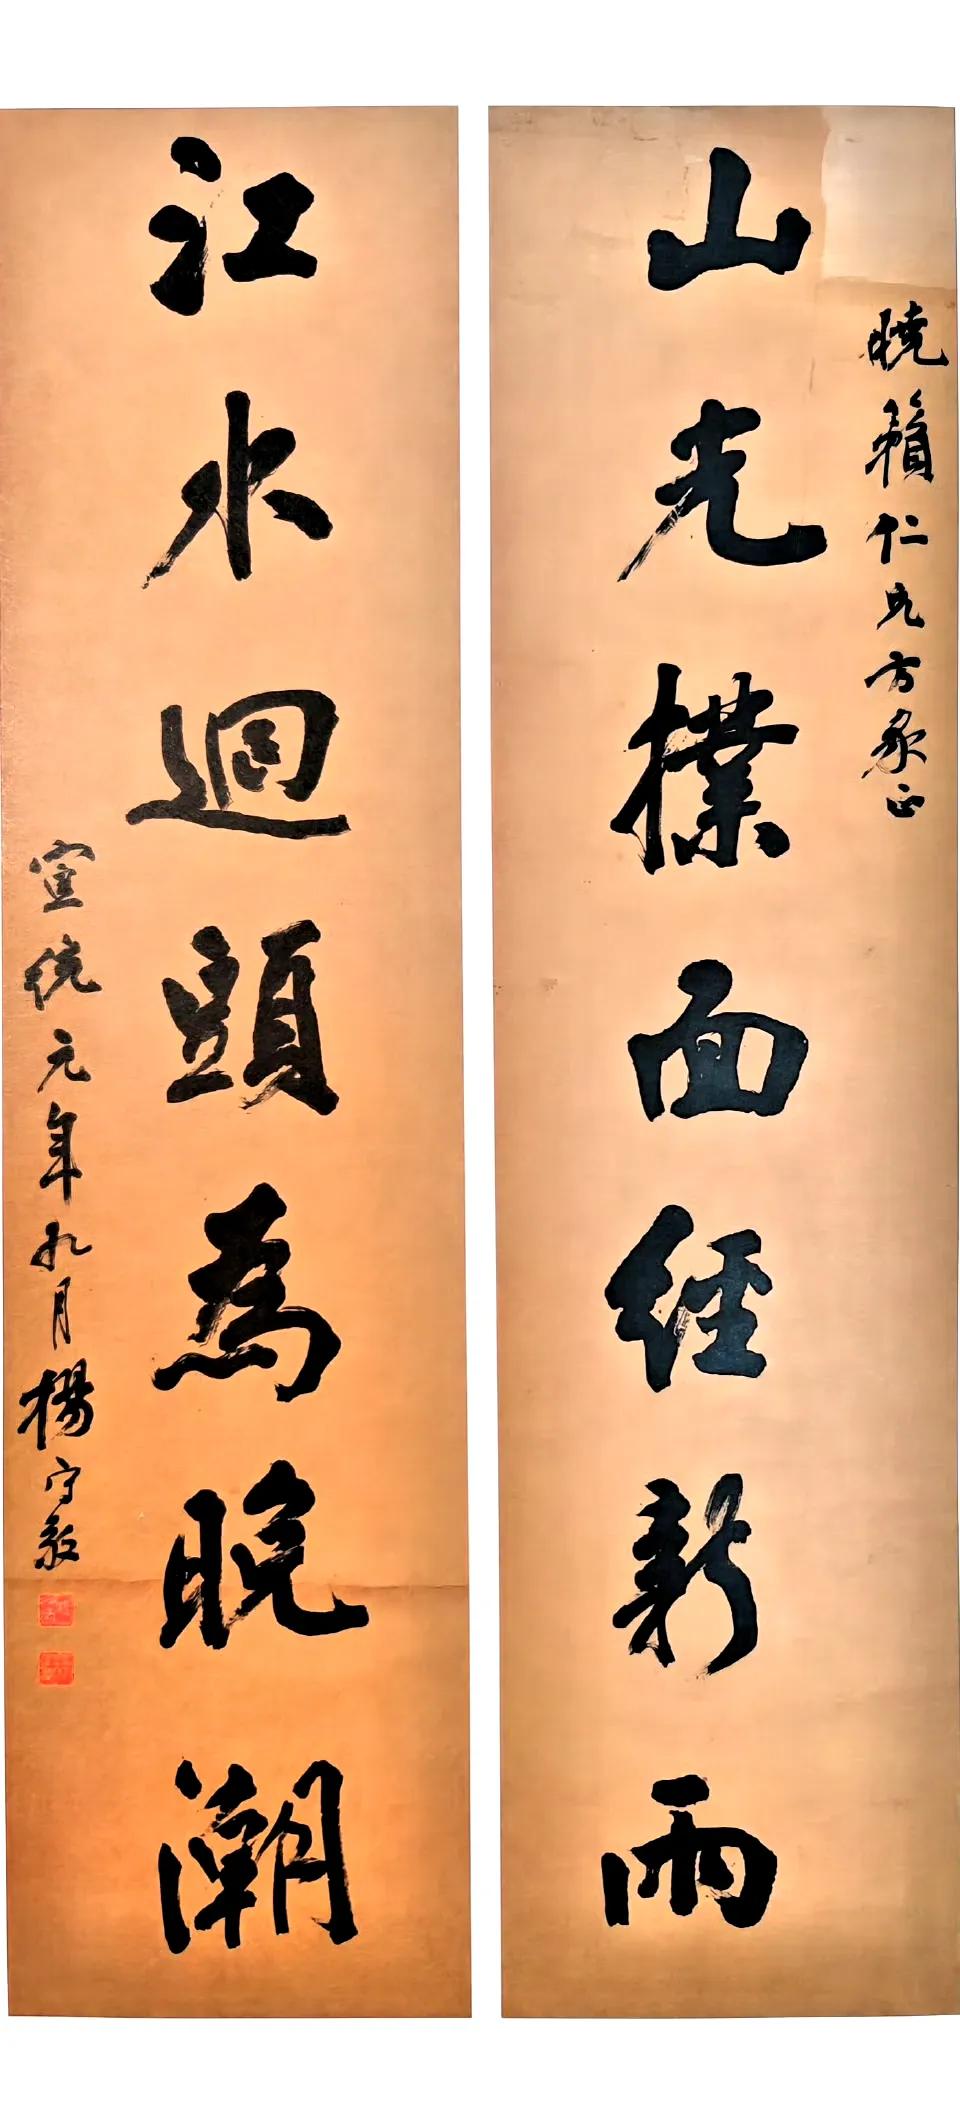 山光撲面經新雨
曉籟仁兄方家正
江水迴頭為晚潮
宣統元年九月楊守敬